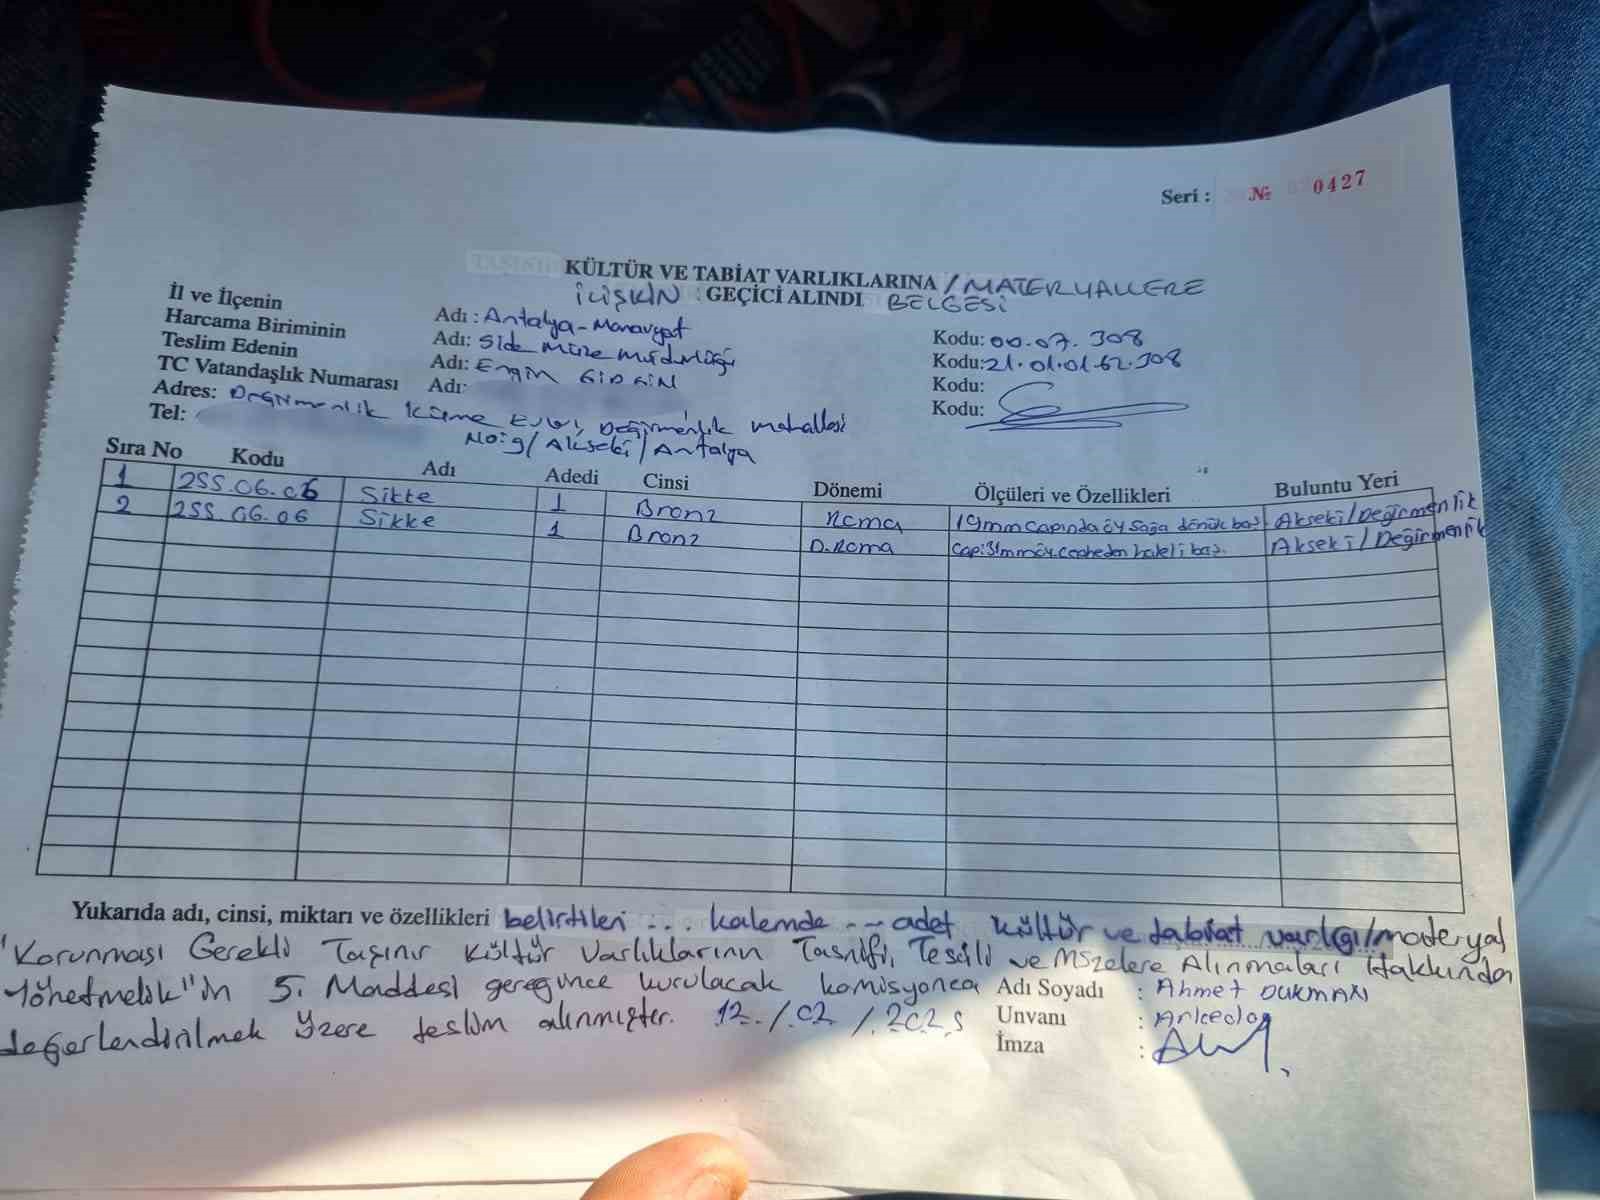 Seri : № 0427
KÜLTÜR VE TABİAT VARLIKLARINA / MATERYALLERE
İLİŞKİN : GEÇİCİ ALINDI BELGESİ
İl ve İlçenin Adı : Antalya-Manavgat Kodu: 00.07.308
Harcama Biriminin Adı: Side Müze Müdürlüğü Kodu: 21.01.01.62.308
Teslim Edenin Adı: Engin Kodu:
TC Vatandaşlık Numarası Adı: Kodu:
Adres: Değirmenlik Küme Evler, Değirmenlik Mahallesi
Tel: No:9/Akseki/Antalya
Sıra No Kodu Adı Adedi Cinsi Dönemi Ölçüleri ve Özellikleri Buluntu Yeri
1 255.06.06 Sikke 1 Bronz Roma 19mm çapında öy sağa dönük baş Akseki/Değirmenlik
2 255.06.06 Sikke 1 Bronz D.Roma Çapı:31mm öy. cepheden haleli baş. Akseki/Değirmenlik
Yukarıda adı, cinsi, miktarı ve özellikleri belirtilen ... kalemde ... adet kültür ve tabiat varlığı/materyal
"Korunması Gerekli Taşınır Kültür Varlıklarının Tasnifi, Tescili ve Müzelere Alınmaları Hakkında
Yönetmelik"in 5. Maddesi gereğince kurulacak komisyonca
değerlendirilmek üzere teslim alınmıştır. 12./02/2025
Adı Soyadı : Ahmet
Unvanı : Arkeolog
İmza :